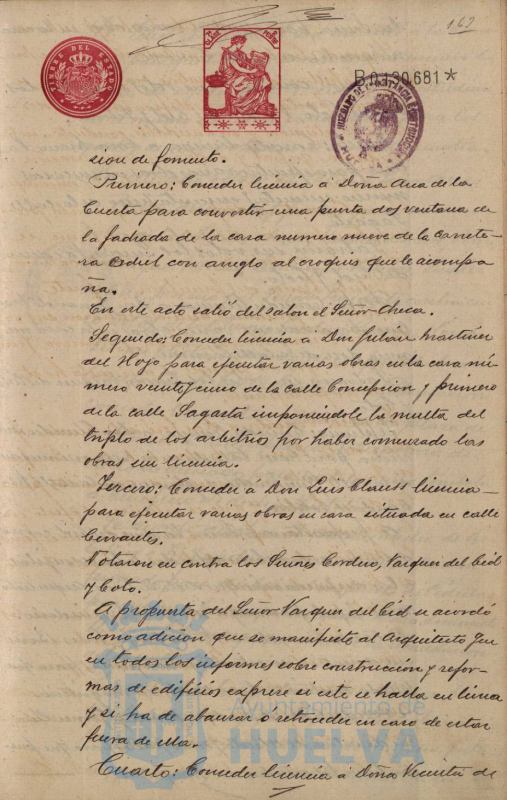 169
TIMBRE DEL ESTADO
B0130.681*
sion de fomento.
Primero: Conceder licencia á Doña Ana de la
Cuesta para convertir una puerta dos ventana de
la fachada de la casa numero nueve de la carrete-
ra Odiel con arreglo al croquis que le acompa
ña.
En este acto salió del salon el Señor Checa.
Segundo: Conceder licencia á Don Julián Martinez
del Hoyo para ejecutar varias obras en la casa nú-
mero veinticinco de la calle Concepcion y primero
de la calle Sagasta imponiendole la multa del
triplo de los arbitrios por haber comenzado las
obras sin licencia.
Tercero: Conceder á Don Luis Clauss licencia
para ejecutar varias obras en casa situada en calle
Cervantes.
Votaron en contra los Señores Cordero, Vazquez del Cid
y Coto.
A propuesta del Señor Vazquez del Cid se acordó
como adicion que se manifieste al Arquitecto que
en todos los informes sobre construcción y refor-
mas de edificios exprese si este se halla en linea
y si ha de abanzar o retroceder en caso de estar
fuera de ella.
Cuarto: Conceder licencia á Doña Vicenta de
Ayuntamiento de
HUELVA